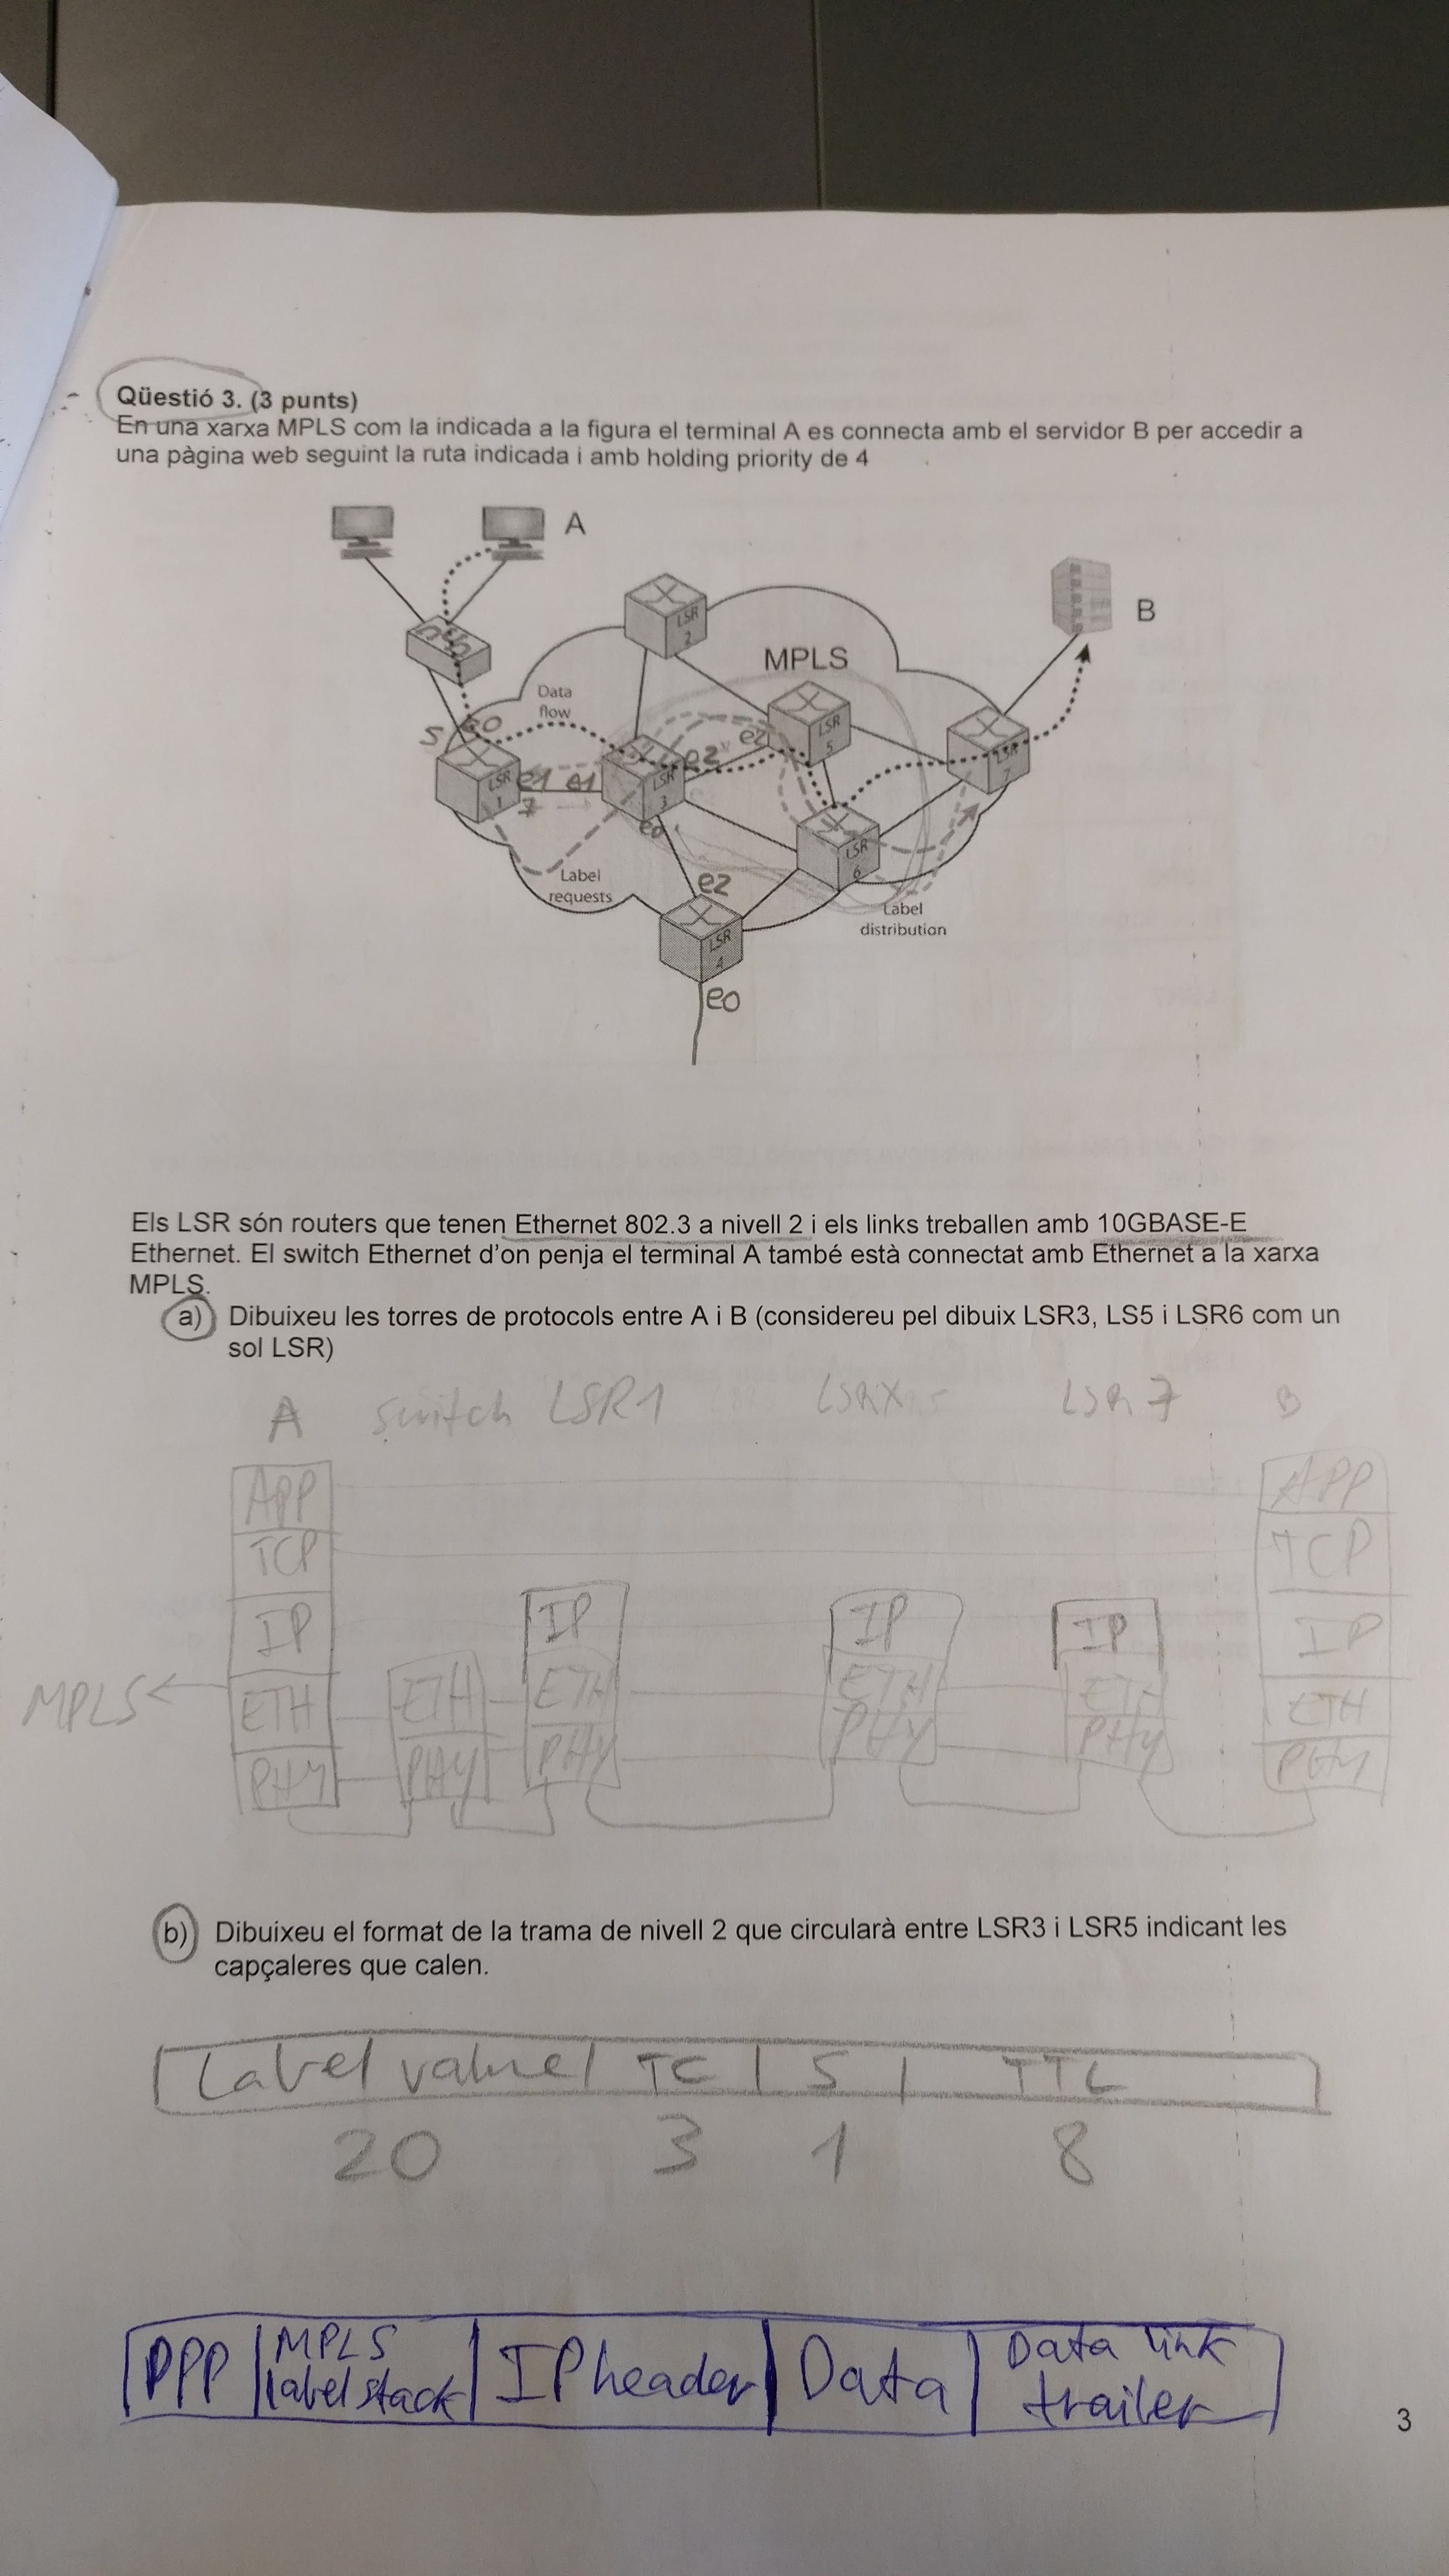 Qüestió 3. (3 punts)
En una xarxa MPLS com la indicada a la figura el terminal A es connecta amb el servidor B per accedir a
una pàgina web seguint la ruta indicada i amb holding priority de 4
A
B
LSR
2
MPLS
Data
flow
LSR
5
LSR
7
S
e0
e2
e2
LSR
1
e1
e1
7
LSR
3
e0
LSR
6
Label
requests
e2
Label
distribution
LSR
4
e0
Els LSR són routers que tenen Ethernet 802.3 a nivell 2 i els links treballen amb 10GBASE-E
Ethernet. El switch Ethernet d'on penja el terminal A també està connectat amb Ethernet a la xarxa
MPLS.
a) Dibuixeu les torres de protocols entre A i B (considereu pel dibuix LSR3, LS5 i LSR6 com un
sol LSR)
A switch LSR1 LSRX LSR7 B
APP APP
TCP TCP
IP IP IP IP IP
MPLS
ETH ETH ETH ETH ETH ETH
PHY PHY PHY PHY PHY PHY
b) Dibuixeu el format de la trama de nivell 2 que circularà entre LSR3 i LSR5 indicant les
capçaleres que calen.
Label value TC S TTL
20 3 1 8
PPP MPLS label stack IP header Data Data link trailer
3